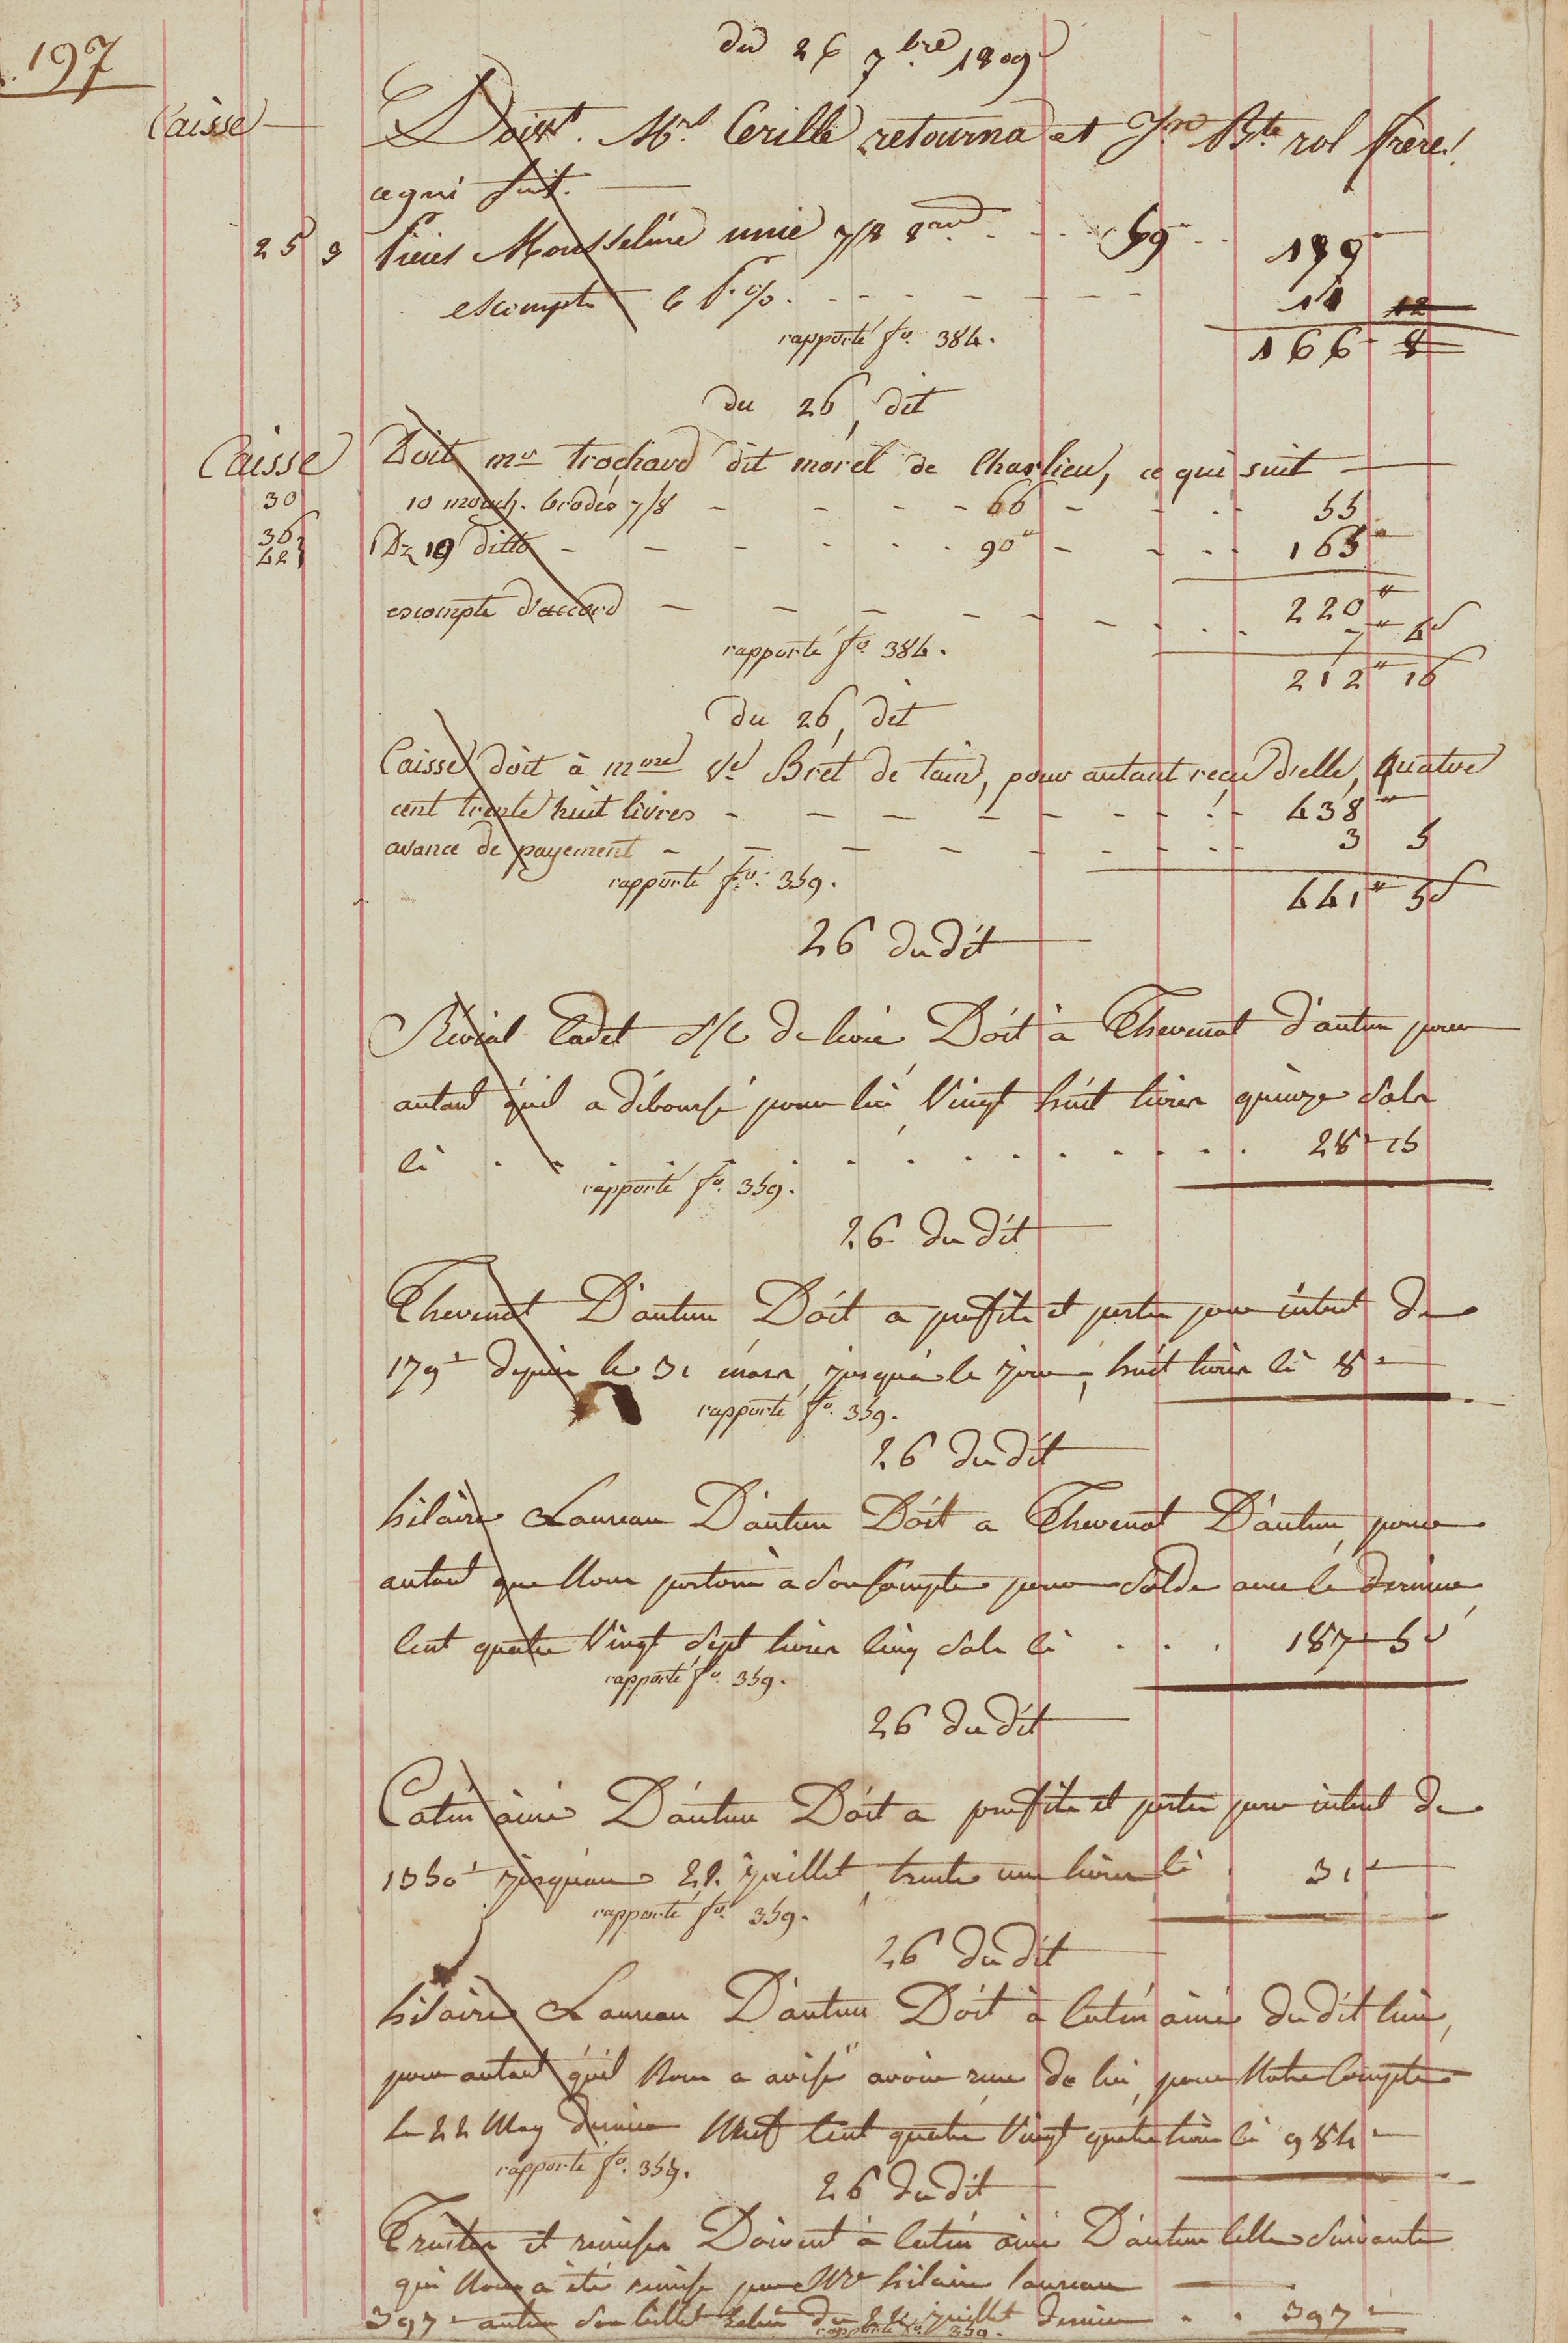 197
du 26 7bre 1809
Caisse Doivt. Mrs Cerille retourna et Jn Bte rol frere
ce qui suit.
25 3 pieces Mousseline unie 7/8 8au 59 189
escompte 6 P. % 11 12
rapporté fo. 384. 166 8
du 26, dit
Caisse Doit mr trochard dit morel de Charlieu, ce qui suit
30 10 mouch. brodés 7/8 66 55
36 Dz 19 ditto 90" 165"
42
220"
escompte d'accord 7" 4s
rapporté fo. 384.
212" 16
du 26, dit
Caisse doit à mme Ve Bret de tain, pour autant reçu d'elle, quatre
cent trente huit livres 438"
avance de payement 3 5
rapporté fo. 359.
441" 5s
26 du dit
Revial Cadet s/c de livre Doit à Thevenot d'autun pour
autant qu'il a déboursé pour lui, Vingt huit livres quinze sols
ci 28 - 15
rapporté fo. 359.
26 du dit
Thevenot D'autun Doit a proffits et pertes pour interet de
179" depuis le 31 mars, jusqu'à ce jour, huit livres ci 8"
rapporté fo. 359.
26 du dit
hilaire Laureau D'autun Doit a Thevenot D'autun, pour
autant que Nous portons a son Compte pour solde avec ce dernier,
Cent quatre Vingt Sept livres Cinq Sols ci 187 - 5s
rapporté fo. 359.
26 du dit
Catin ainé D'autun Doit a proffits et pertes pour interet de
1550" jusqu'au 22 juillet, trente une livres ci 31"
rapporté fo. 359.
26 du dit
hilaire Laureau D'autun Doit à Catin ainé du dit lieu,
pour autant qu'il Nous a avisé avoir reçu de lui, pour Notre Compte
le 22 May dernier Neuf Cent quatre Vingt quatre livres ci 984"
rapporté fo. 359.
26 du dit
Traites et remises Doivent à Catin ainé D'autun Celle Suivante
qui Nous a été remise par Mr hilaire Laureau
397" autun Son billet du 22 juillet dernier 397"
rapporté fo. 359.